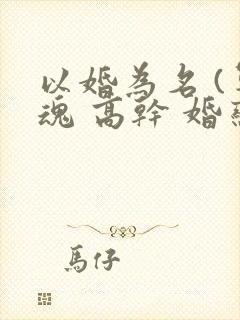 以婚為名 (
魂 高幹 婚
馬仔